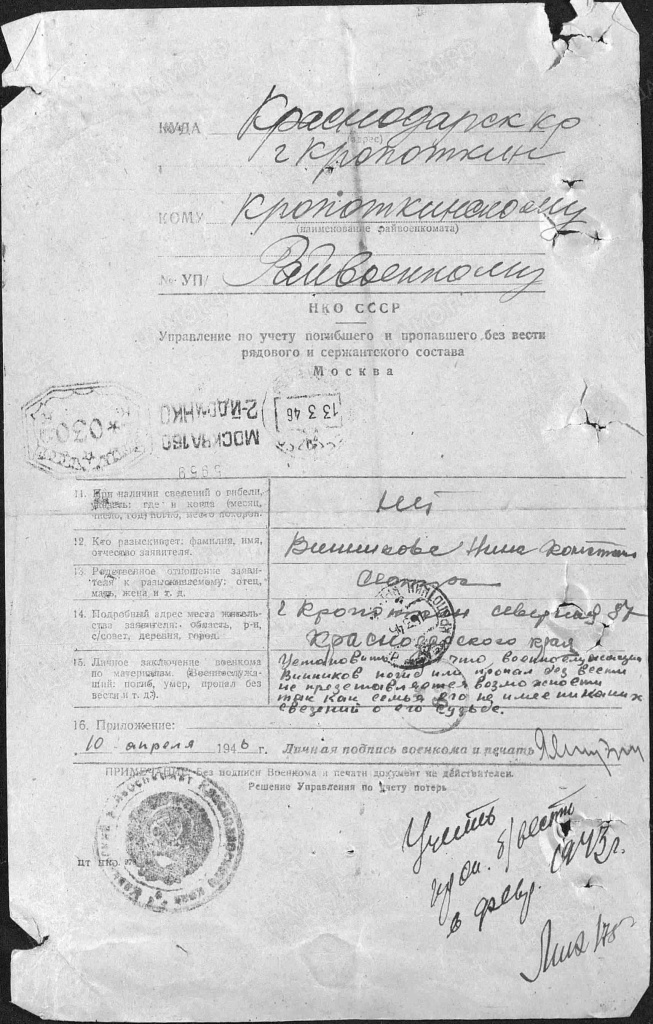 КУДА Краснодарск кр
(адрес)
г Кропоткин
КОМУ Кропоткинскому
(наименование райвоенкомата)
№ УП/ Райвоенкому
НКО СССР
Управление по учету погибшего и пропавшего без вести
рядового и сержантского состава
Москва
13 3 46
МОСКВА 160
2-Й ДОМ НКО
5959
*030
11. При наличии сведений о гибели,
указать: где и когда (месяц,
число, год) погиб, место похорон. Нет
12. Кто разыскивает: фамилия, имя,
отчество заявителя. Винникова Нина
13. Родственное отношение заяви-
теля к разыскиваемому: отец,
мать, жена и т. д. Сестра
14. Подробный адрес места житель-
ства заявителя: область, р-н,
с/совет, деревня, город. г Кропоткин северная 87
Краснодарского края
15. Личное заключение военкома
по материалам. (Военнослужа-
щий: погиб, умер, пропал без
вести и т. д.).
Установить что, военнослужащий
Винников погиб или пропал без вести
не представляется возможности
так как семья его не имеет никаких
сведений о его судьбе.
16. Приложение:
10 апреля 1946 г. Личная подпись военкома и печать
ПРИМЕЧАНИЕ: Без подписи Военкома и печати документ не действителен.
Решение Управления по учету потерь
Учесть
проп. б/вести
в февр. 1943 г.